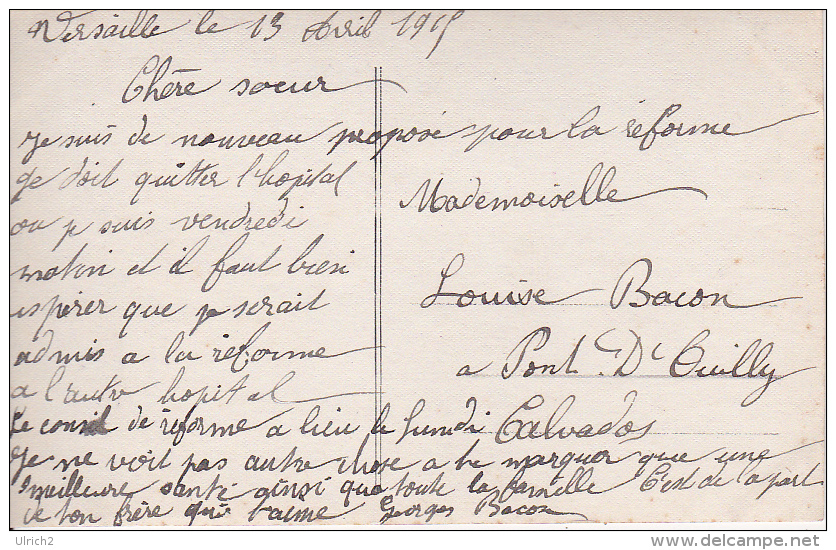 Versaille le 13 Avril 1915
Chère soeur
Je suis de nouveau proposé pour la réforme
Je doit quitter l'hopital
ou je suis vendredi
matin et il faut bien
espérer que je serait
admis a la réforme
a l'autre hopital
Le conseil de réforme a lieu le lundi
Je ne voit pas autre chose a te marquer que une
meilleure santé ainsi qua toute la famille C'est de la part
de ton frère qui t'aime Georges Bacon
Mademoiselle
Louise Bacon
a Pont D'Ouilly
Calvados
Ulrich2
www.delcampe.net